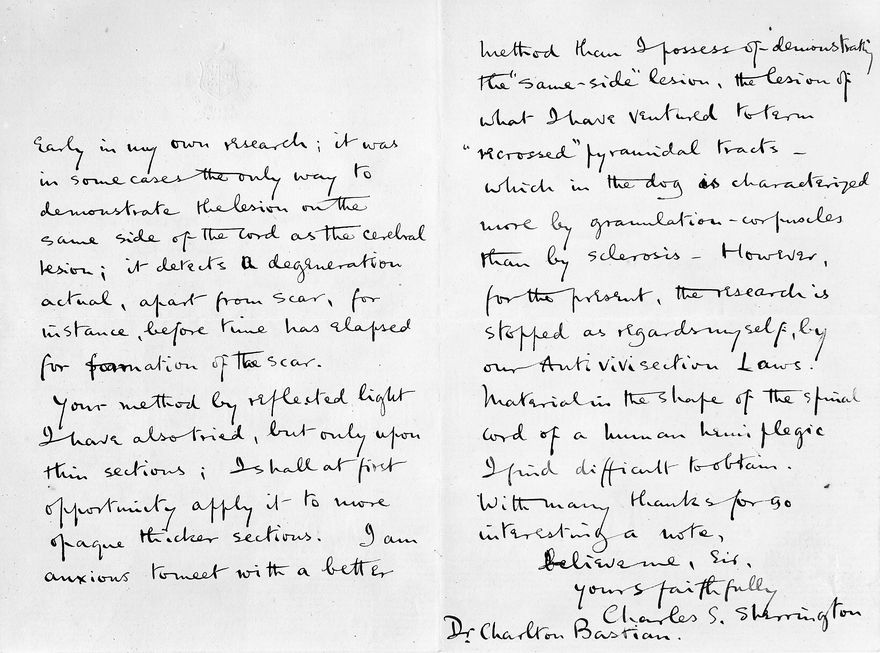 Early in my own research; it was
in some cases the only way to
demonstrate the lesion on the
same side of the cord as the cerebral
lesion; it detects a degeneration
actual, apart from scar, for
instance, before time has elapsed
for formation of the scar.
Your method by reflected light
I have also tried, but only upon
thin sections; I shall at first
opportunity apply it to more
opaque thicker sections. I am
anxious to meet with a better
method than I possess of demonstrating
the "same-side" lesion, the lesion of
what I have ventured to term
"recrossed" pyramidal tracts –
which in the dog is characterized
more by granulation-corpuscles
than by sclerosis – However,
for the present, the research is
stopped as regards myself, by
our Antivivisection Laws.
Material in the shape of the spinal
cord of a human hemiplegic
I find difficult to obtain.
With many thanks for so
interesting a note,
believe me, Sir,
yours faithfully
Charles S. Sherrington
Dr. Charlton Bastian.